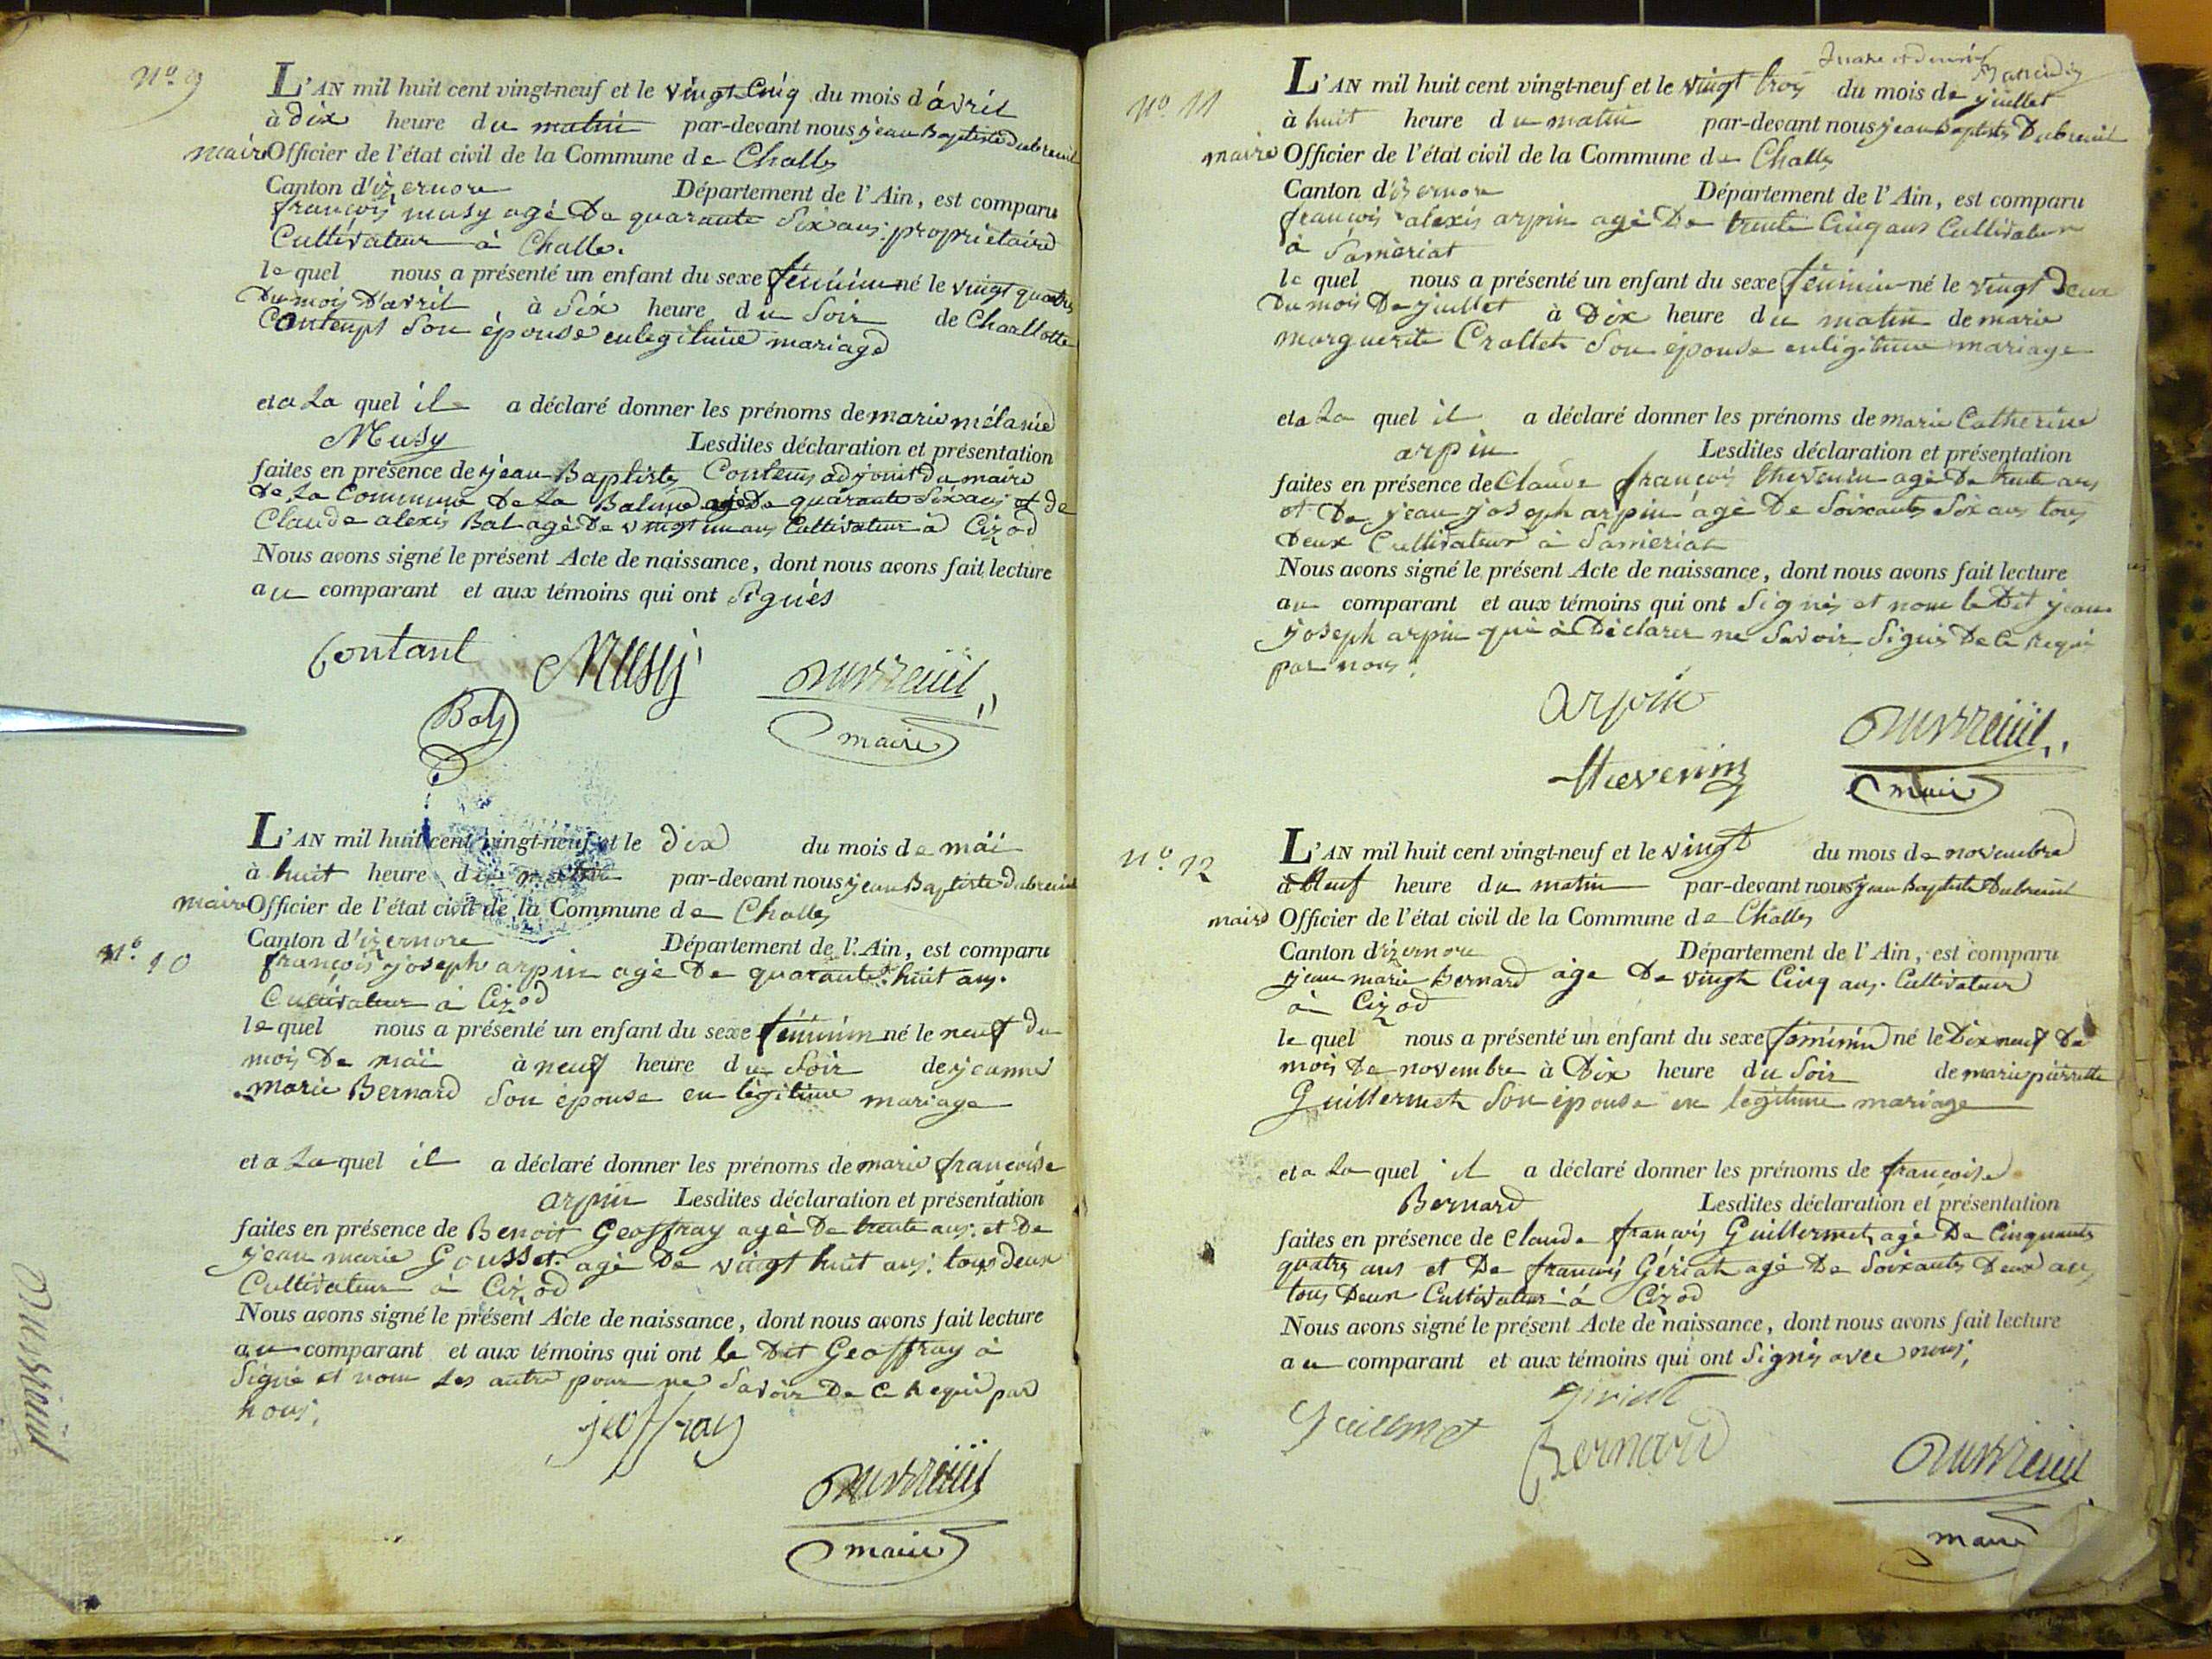 N.o 9
L'AN mil huit cent vingt-neuf et le vingt Cinq du mois d'avril
à dix heure du matin par-devant nous jean Baptiste dubreuil
maire Officier de l'état civil de la Commune de Challes
Canton d'izernore Département de l'Ain, est comparu
françois musy agé De quarante Six ans propriétaire
Cultivateur à Challe.
le quel nous a présenté un enfant du sexe féminin né le vingt quatre
Du mois D'avril à Six heure du Soir de Charllotte
Contenpt Son épouse en legitime mariage
et a La quel il a déclaré donner les prénoms de marie mélanie
Musy Lesdites déclaration et présentation
faites en présence de jean Baptiste Contens adjoint du maire
De La Commune De La Balme agé De quarante Six ans et de
Claude alexis Bal agé De vingt un ans Cultivateur à Cizod
Nous avons signé le présent Acte de naissance, dont nous avons fait lecture
au comparant et aux témoins qui ont Signés
Contant Musy Dubreuil
Baly maire
L'AN mil huit cent vingt-neuf et le dix du mois de maï
à huit heure du matin par-devant nous jean Baptiste dubreuil
maire Officier de l'état civil de la Commune de Challes
N.o 10
Canton d'izernore Département de l'Ain, est comparu
françois joseph arpin agé De quarante huit ans.
Cultivateur à Cizod
le quel nous a présenté un enfant du sexe féminin né le neuf du
mois De maï à neuf heure du Soir de jeanne
marie Bernard Son épouse en légitime mariage
et a La quel il a déclaré donner les prénoms de marie françoise
arpin Lesdites déclaration et présentation
faites en présence de Benoit Geoffray agé De trente ans et De
jean marie Gousset agé De vingt huit ans tous deux
Cultivateur à Cizod
Nous avons signé le présent Acte de naissance, dont nous avons fait lecture
au comparant et aux témoins qui ont le Dit Geoffray à
Signé et nom Les autre pour ne Savoir De Ce Requis par
nous.
jeoffray
Dubreuil
maire
N.o 11
L'AN mil huit cent vingt-neuf et le vingt trois du mois de juillet
à huit heure du matin par-devant nous jean Baptiste Dubreuil
maire Officier de l'état civil de la Commune de Challes
Canton d'izernore Département de l'Ain, est comparu
françois alexis arpin agé De trente Cinq ans Cultivateur
à Samériat
le quel nous a présenté un enfant du sexe féminin né le vingt Deux
Du mois De juillet à Dix heure du matin de marie
marguerite Crollet Son épouse en ligitime mariage
et a La quel il a déclaré donner les prénoms de marie Catherine
arpin Lesdites déclaration et présentation
faites en présence de Claude françois thevenin agé De trente ans
et De jean joseph arpin agé De Soixante Six ans tous
Deux Cultivateur à Samériat
Nous avons signé le présent Acte de naissance, dont nous avons fait lecture
au comparant et aux témoins qui ont Signés et nom le Dit jean
joseph arpin qui à Déclarer ne Savoir Signer De Ce Requis
par nous.
arpin Dubreuil
thevenin maire
N.o 12
L'AN mil huit cent vingt-neuf et le vingt du mois de novembre
à Neuf heure du matin par-devant nous jean Baptiste Dubreuil
maire Officier de l'état civil de la Commune de Challes
Canton d'izernore Département de l'Ain, est comparu
jean marie Bernard age De vingt Cinq ans. Cultivateur
à Cizod
le quel nous a présenté un enfant du sexe féminin né le Dix neuf Du
mois De novembre à Dix heure du Soir de marie pierrette
Guillermet Son épouse en legitime mariage
et a La quel il a déclaré donner les prénoms de françoise
Bernard Lesdites déclaration et présentation
faites en présence de Claude françois Guillermet agé De Cinquante
quatre ans et De françois Gériat agé De Soixante Deux ans
tous Deux Cultivateur à Cizod
Nous avons signé le présent Acte de naissance, dont nous avons fait lecture
au comparant et aux témoins qui ont Signés avec nous.
Guilermet Giriat
Bernard Dubreuil
maire